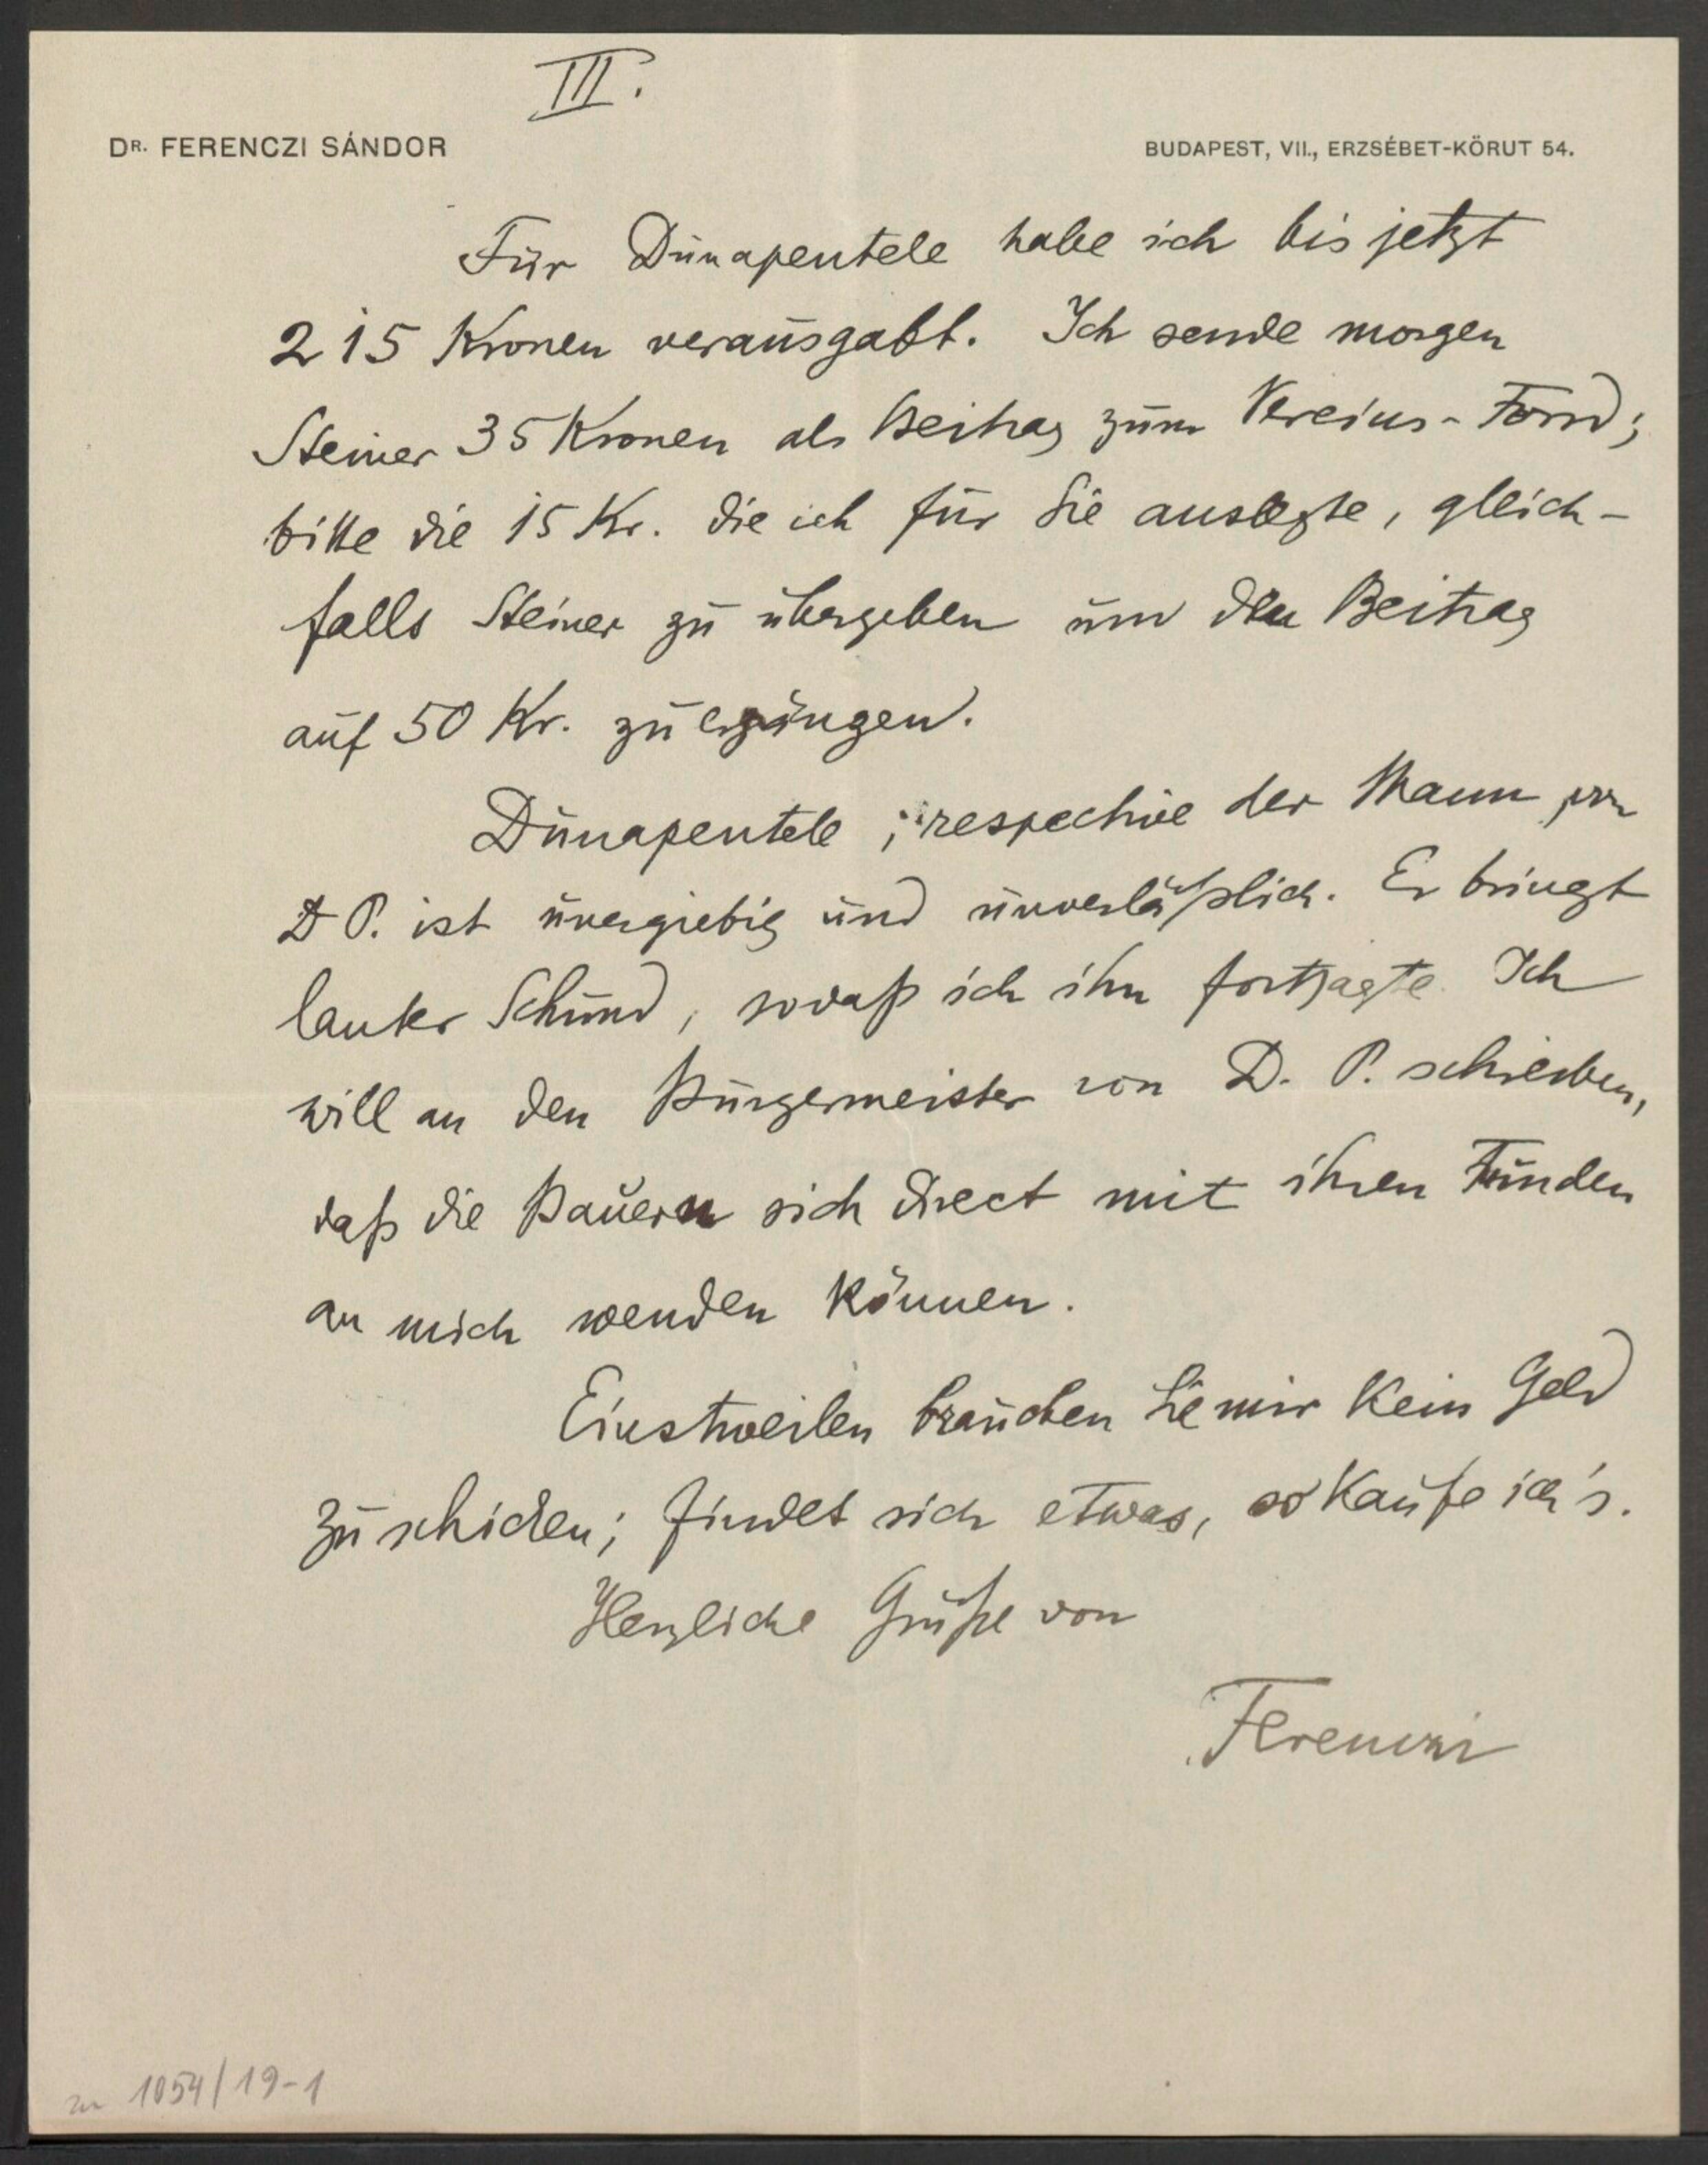 III.
DR. FERENCZI SÁNDOR
BUDAPEST, VII., ERZSÉBET-KÖRUT 54.
Für Dunapentele habe ich bis jetzt
215 Kronen verausgabt. Ich sende morgen
Steiner 35 Kronen als Beitrag zum Vereins-Fond;
bitte die 15 Kr. die ich für Sie auslegte, gleich-
falls Steiner zu übergeben um den Beitrag
auf 50 Kr. zu ergänzen.
Dunapentele, respective der Mann von
D P. ist unergiebig und unverläßlich. Er bringt
lauter Schund, sodaß ich ihn fortjagte. Ich
will an den Bürgermeister von D. P. schreiben,
daß die Bauern sich direct mit ihren Funden
an mich wenden können.
Einstweilen brauchen Sie mir kein Geld
zu schicken; findet sich etwas, so kaufe ich's.
Herzliche Grüße von
Ferenczi
zu 1054/19-1